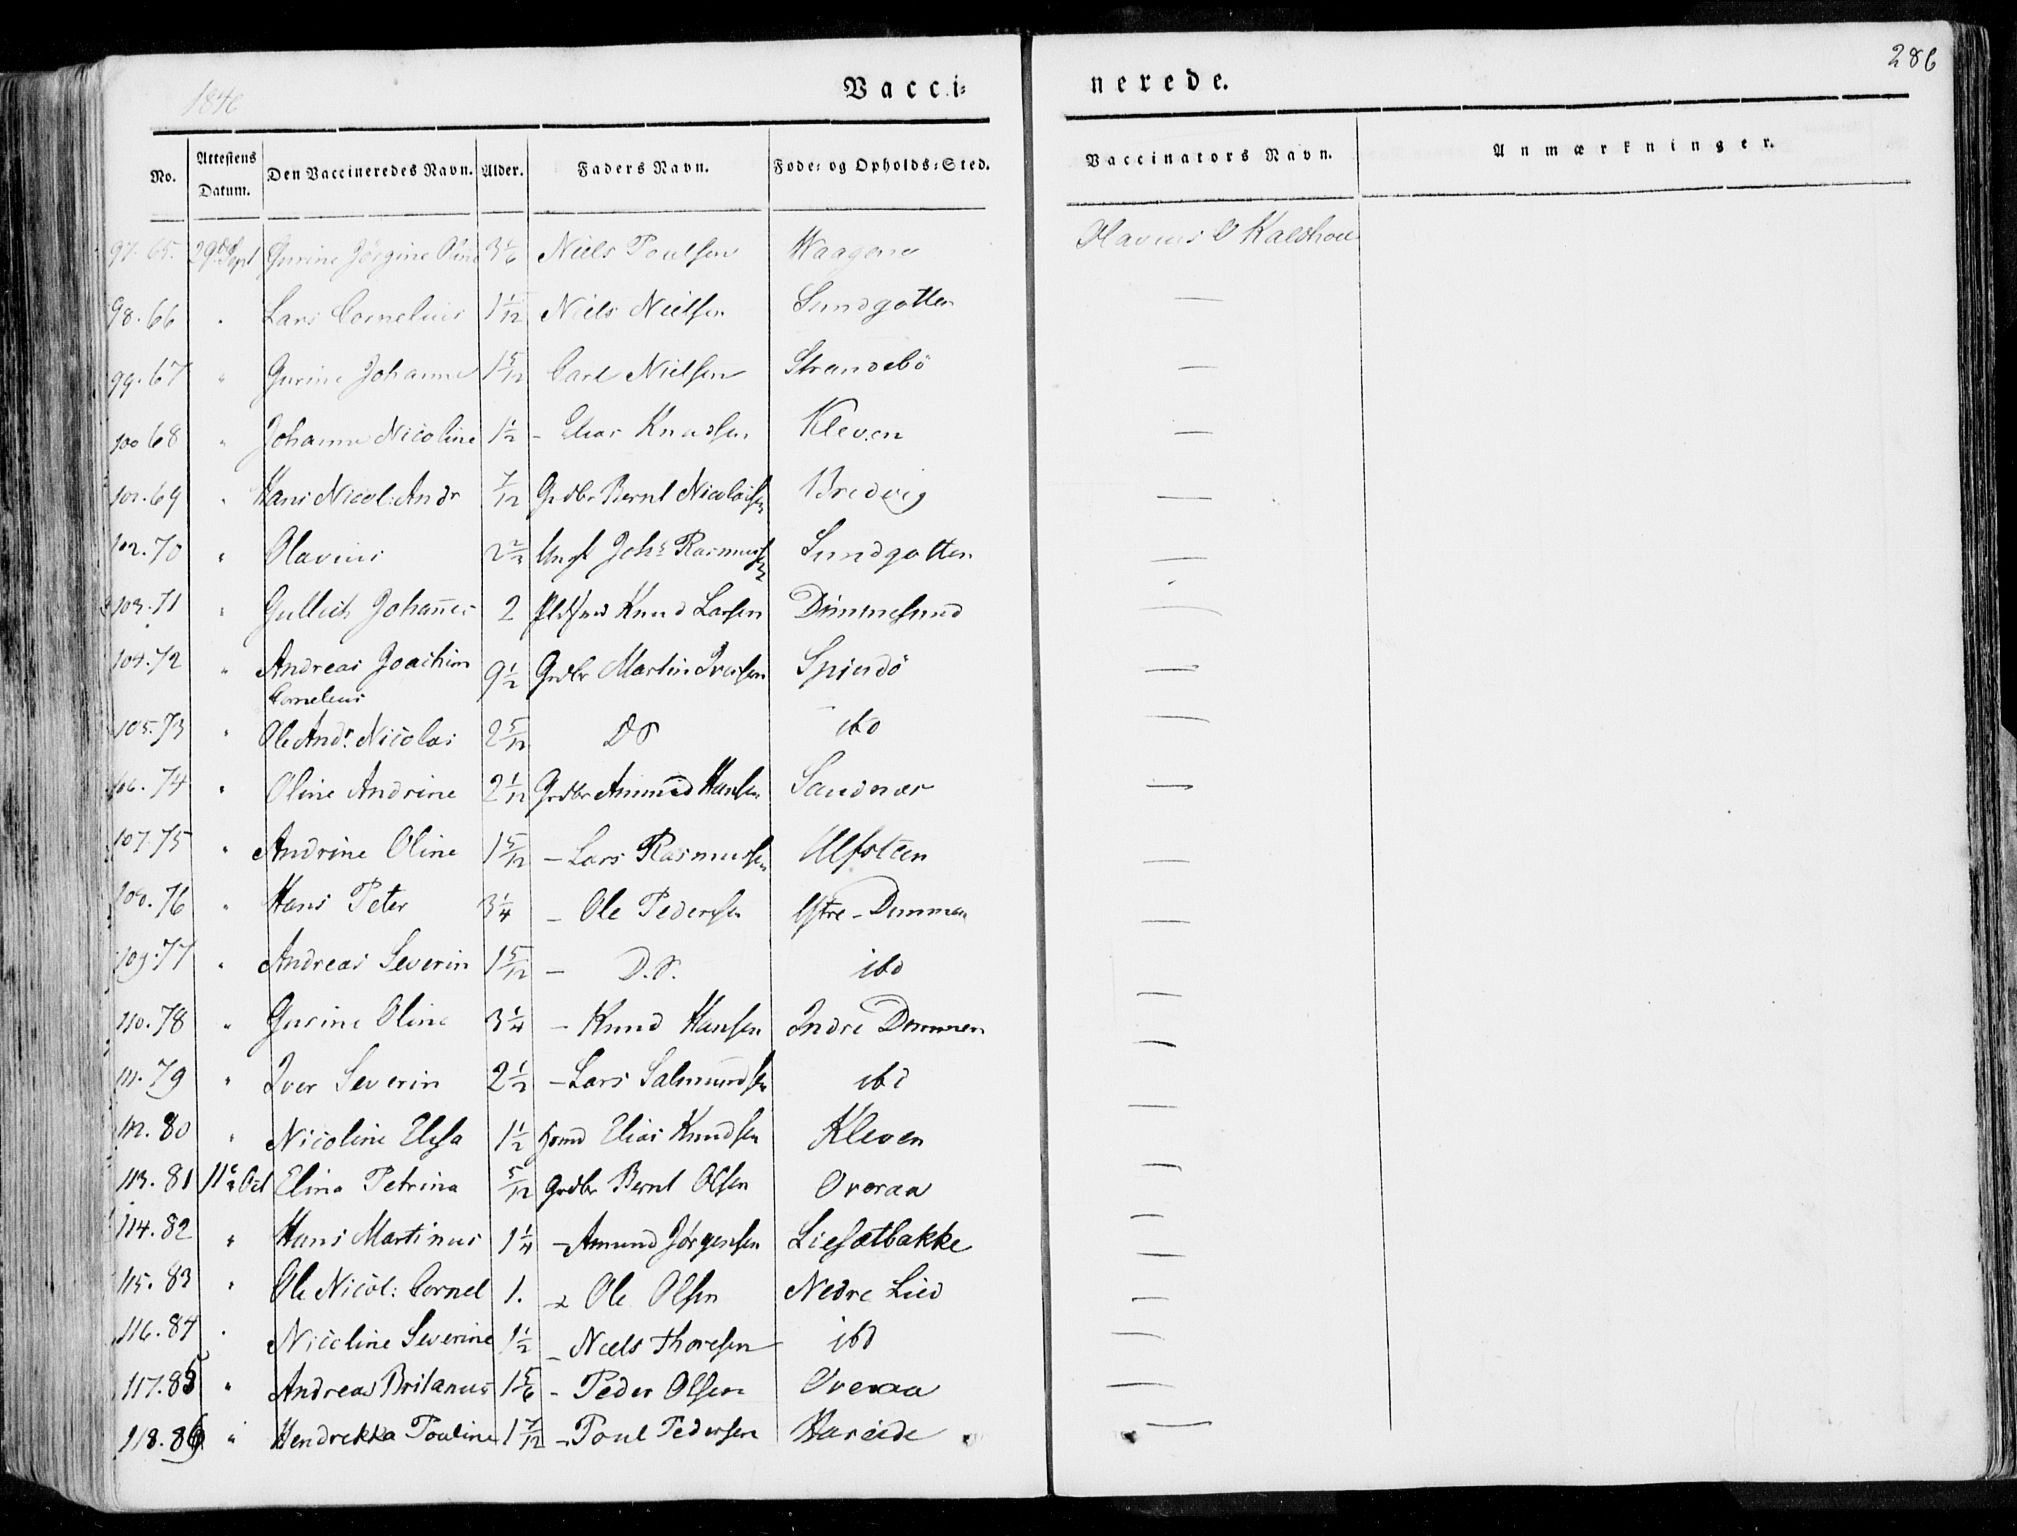 286
1846
Vacci=
nerede.
No. Attestens Datum. Den Vaccineredes Navn. Alder. Faders Navn. Føde= og Opholds=Sted. Vaccinators Navn. Anmærkninger.
97. 65. 29de Sept Gurine Jørgine Oline 3 1/6 Niels Poulsen Waagene Olavus O Kalshou
98. 66 " Lars Cornelius 1 1/12 Niels Nielsen Sundgotten —
99. 67 " Gurine Johanne 1 5/12 Carl Nielsen Strandebö —
100 68 " Johanne Nicoline 1 1/2 - Elias Knudsen Kleven —
101. 69 " Hans Nicol: Andr 7/12 Grdbr Bernt Nicolaisen Bredvig —
102. 70 " Olavius 2 1/2 Ungk Johs Rasmussen Sundgotten —
103. 71 " Gullich Johannes 2 Knud Larsen Dimmesund —
104. 72 " Andreas Joachim Cornelius 9 1/2 Grdbr Martin Iversen Spiudö —
105. 73 " Ole Andr. Nicolai 2 5/12 Do ibd —
106. 74 " Oline Andrine 2 1/12 Grdbr Ammund Hansen Sandnær —
107. 75 " Andrine Oline 1 5/12 - Lars Rasmussen Ulfsteen —
108. 76 " Hans Peter 3 1/4 - Ole Pedersen Ystre-Dimmen —
109. 77 " Andreas Severin 1 5/12 - D.o. ibd —
110. 78 " Gurine Oline 3 1/4 - Knud Hansen Indre Dimmen —
111. 79 " Iver Severin 2 1/2 - Lars Salmundsen ibd —
112. 80 " Nicoline Elisa 1 1/2 Elias Knudsen Kleven —
113. 81 11te Oct Elina Petrina 5/12 Grdbr Bernt Olsen Overaa —
114. 82 " Hans Martinus 1 1/4 - Amund Jørgensen Liesætbakke —
115. 83 " Ole Nicol: Cornel 1. - Ole Olsen Nedre Lied —
116. 84 " Nicoline Severine 1 1/2 - Niels Thoresen ibd —
117. 85 " Andreas Britanus 1 5/6 - Peder Olsen Overaa —
118. 86 " Hendrekka Pouline 1 7/12 - Poul Pedersen Hareide —